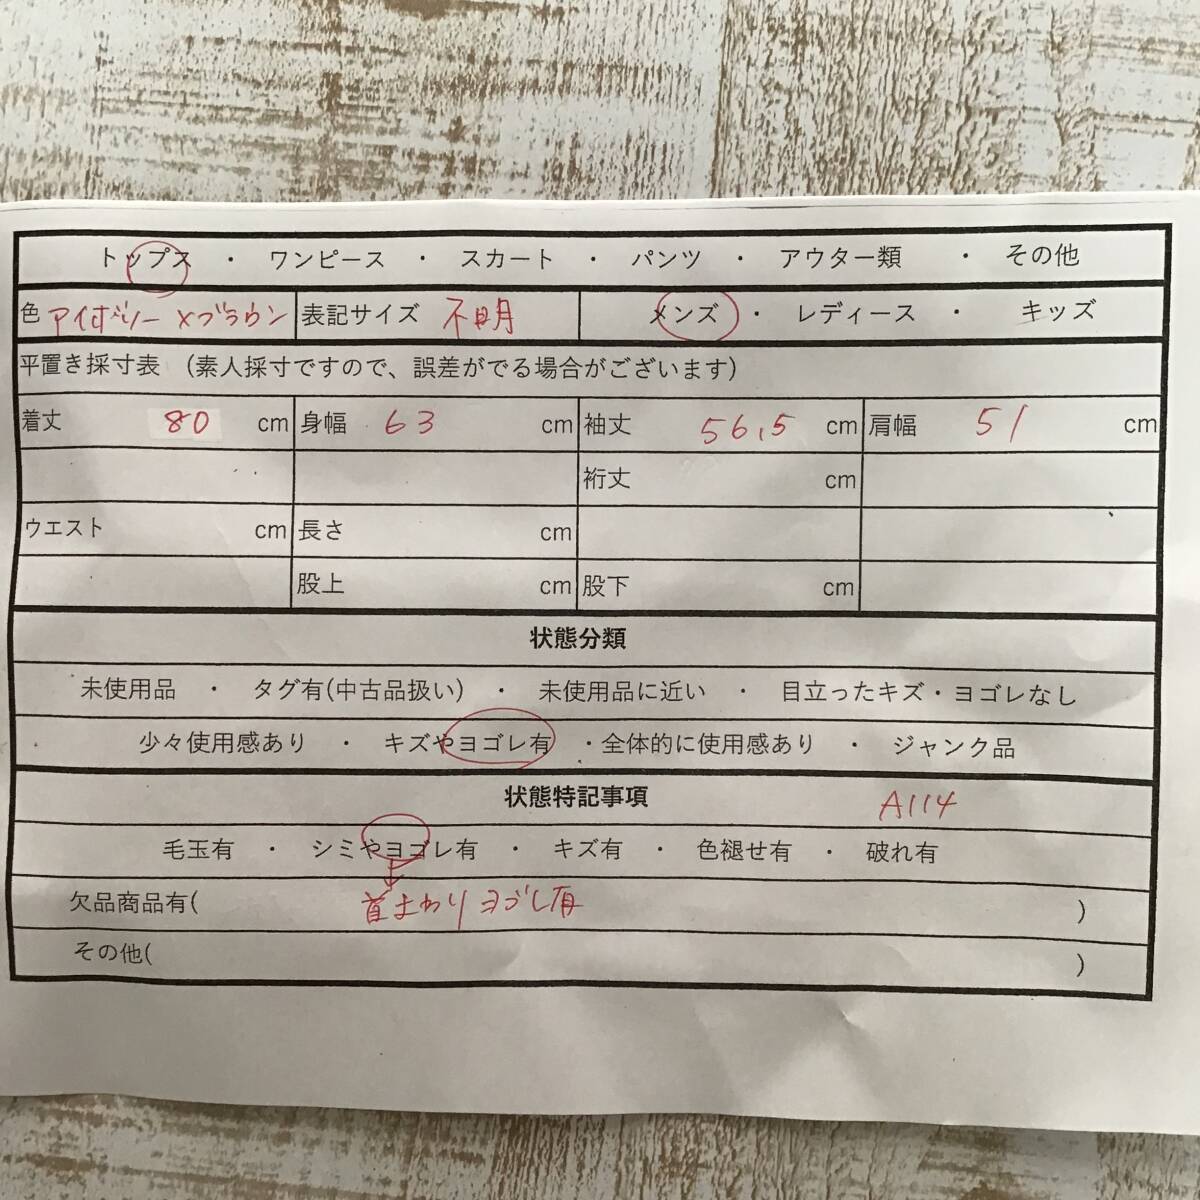 トップス ・ ワンピース ・ スカート ・ パンツ ・ アウター類 ・ その他
色 アイボリー×ブラウン 表記サイズ 不明 メンズ ・ レディース ・ キッズ
平置き採寸表 (素人採寸ですので、誤差がでる場合がございます)
着丈 80 cm 身幅 63 cm 袖丈 56,5 cm 肩幅 51 cm
裄丈 cm
ウエスト cm 長さ cm
股上 cm 股下 cm
状態分類
未使用品 ・ タグ有(中古品扱い) ・ 未使用品に近い ・ 目立ったキズ・ヨゴレなし
少々使用感あり ・ キズやヨゴレ有 ・全体的に使用感あり ・ ジャンク品
状態特記事項 A114
毛玉有 ・ シミやヨゴレ有 ・ キズ有 ・ 色褪せ有 ・ 破れ有
欠品商品有( 首まわりヨゴレ有 )
その他( )